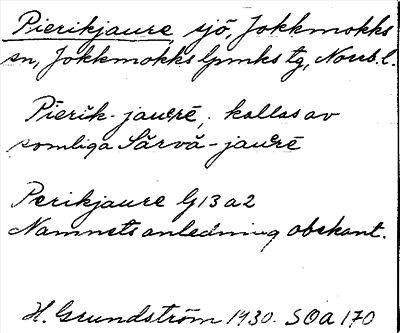 Pierikjaure, sjö, Jokkmokks
sn, Jokkmokks lpmks tg, Norrb. l.
Pierik-jaurē, kallas av
somliga Sārvā-jaurē
Perikjaure G13 a2
Namnets anledning obekant.
H. Grundström 1930. SOA 170